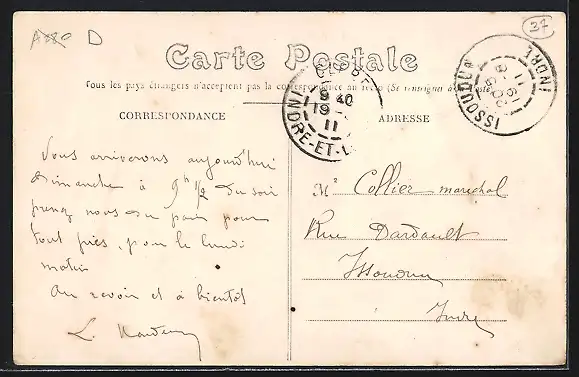 A280 D
37
Carte Postale
Tous les pays étrangers n'acceptent pas la correspondance au recto (Se renseigner à la Poste)
CORRESPONDANCE
ADRESSE
9 40
19
11
INDRE-ET-L
ISSOUDUN
INDRE
Vous arriverons aujourd'hui
dimanche à 9h 1/2 du soir
prenez nous du pain pour
tout près, pour le lundi
matin
Au revoir et à bientôt
L.
Mr Collier maréchal
Rue Dardault
Issoudun
Indre